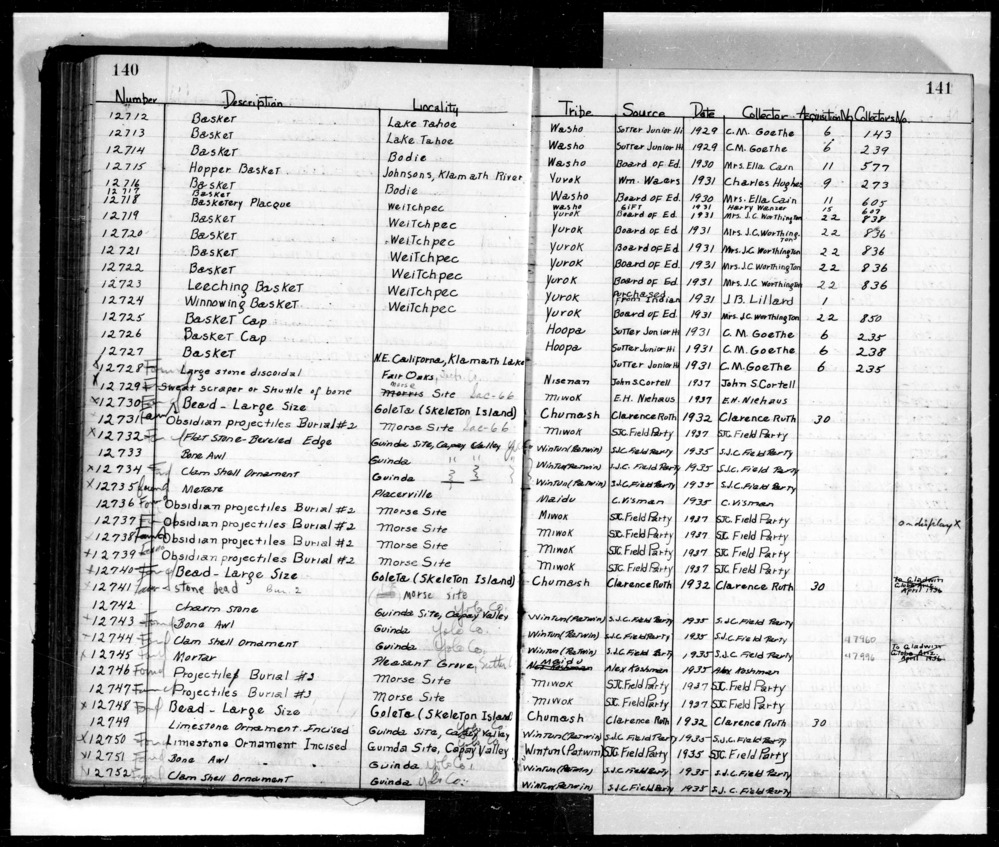 140
141
Number Description Locality Tribe Source Date Collector Acquisition No. Collectors No.
12712 Basket Lake Tahoe Washo Sutter Junior Hi 1929 C.M. Goethe 6 143
12713 Basket Lake Tahoe Washo Sutter Junior Hi 1929 C.M. Goethe 6 239
12714 Basket Bodie Washo Board of Ed. 1930 Mrs. Ella Cain 11 577
12715 Hopper Basket Johnsons, Klamath River Yurok Wm. Waers 1931 Charles Hughes 9 273
12716 Basket Bodie Washo Board of Ed. 1930 Mrs. Ella Cain 11 605
12717 Basket Washo Gift 1931 Harry Wanzer 15 607
12718 Basketery Placque Weitchpec Yurok Board of Ed. 1931 Mrs. J.C. Worthington 22 838
12719 Basket Weitchpec Yurok Board of Ed. 1931 Mrs. J.C. Worthington 22 836
12720 Basket Weitchpec Yurok Board of Ed. 1931 Mrs. J.C. Worthington 22 836
12721 Basket Weitchpec Yurok Board of Ed. 1931 Mrs. J.C. Worthington 22 836
12722 Basket Weitchpec Yurok Board of Ed. 1931 Mrs. J.C. Worthington 22 836
12723 Leeching Basket Weitchpec Yurok Purchased From Indian 1931 J.B. Lillard 1
12724 Winnowing Basket Weitchpec Yurok Board of Ed. 1931 Mrs. J.C. Worthington 22 850
12725 Basket Cap Hoopa Sutter Junior Hi 1931 C.M. Goethe 6 235
12726 Basket Cap Hoopa Sutter Junior Hi 1931 C.M. Goethe 6 238
12727 Basket N.E. Californa, Klamath Lake Sutter Junior Hi 1931 C.M. Goethe 6 235
x 12728 Found Large stone discoidal Fair Oaks, Sacto. Co. Nisenan John S. Cortell 1937 John S. Cortell
x 12729 Sweat scraper or Shuttle of bone Morris Morse Site Sac-66 Miwok E.H. Niehaus 1937 E.H. Niehaus
x 12730 Bead - Large Size Goleta (Skeleton Island) Chumash Clarence Ruth 1932 Clarence Ruth 30
12731 Found Obsidian projectiles Burial #2 Morse Site Sac-66 Miwok SJC Field Party 1937 SJC Field Party
x 12732 Flat stone-Beveled Edge Guinda Site, Capay Valley Wintun (Patwin) S.J.C. Field Party 1935 S.J.C. Field Party
12733 Bone Awl Guinda " " Wintun (Patwin) S.J.C. Field Party 1935 S.J.C. Field Party
x 12734 Clam Shell Ornament Guinda Wintun (Patwin) S.J.C. Field Party 1935 S.J.C. Field Party
x 12735 found Metate Placerville Maidu C. Visman 1935 C. Visman
12736 Found Obsidian projectiles Burial #2 Morse Site Miwok SJC Field Party 1937 SJC Field Party on display X
12737 Obsidian projectiles Burial #2 Morse Site Miwok SJC Field Party 1937 SJC Field Party
12738 Found Obsidian projectiles Burial #2 Morse Site Miwok SJC Field Party 1937 SJC Field Party
x 12739 Obsidian projectiles Burial #2 Morse Site Miwok SJC Field Party 1937 SJC Field Party
x 12740 Bead - Large Size Goleta (Skeleton Island) Chumash Clarence Ruth 1932 Clarence Ruth 30 To Gladwin Globe Ariz. April 1936
12741 stone bead Bur. 2 morse site
12742 Charm stone Guinda Site, Capay Valley Yolo Co. Wintun (Patwin) S.J.C. Field Party 1935 S.J.C. Field Party
x 12743 Found Bone Awl Guinda Yolo Co. Wintun (Patwin) S.J.C. Field Party 1935 S.J.C. Field Party 47960
12744 Clam Shell Ornament Guinda Yolo Co. Wintun (Patwin) S.J.C. Field Party 1935 S.J.C. Field Party 47996 To Gladwin Globe Ariz. April 1936
x 12745 Mortar Pleasant Grove, Sutter Maidu Alex Koshman 1935 Alex Koshman
12746 Found Projectiles Burial #3 Morse Site Miwok SJC Field Party 1937 SJC Field Party
12747 Found Projectiles Burial #3 Morse Site Miwok SJC Field Party 1937 SJC Field Party
x 12748 Bead - Large Size Goleta (Skeleton Island Chumash Clarence Ruth 1932 Clarence Ruth 30
12749 Limestone Ornament Incised Guinda Site, Capay Valley Yolo Co. Wintun (Patwin) S.J.C. Field Party 1935 S.J.C. Field Party
x 12750 Limestone Ornament Incised Guinda Site, Capay Valley Wintun (Patwin) SJC Field Party 1935 SJC Field Party
x 12751 Bone Awl Guinda Yolo Co. Wintun (Patwin) S.J.C. Field Party 1935 S.J.C. Field Party
12752 Clam Shell Ornament Guinda Yolo Co. Wintun (Patwin) S.J.C. Field Party 1935 S.J.C. Field Party